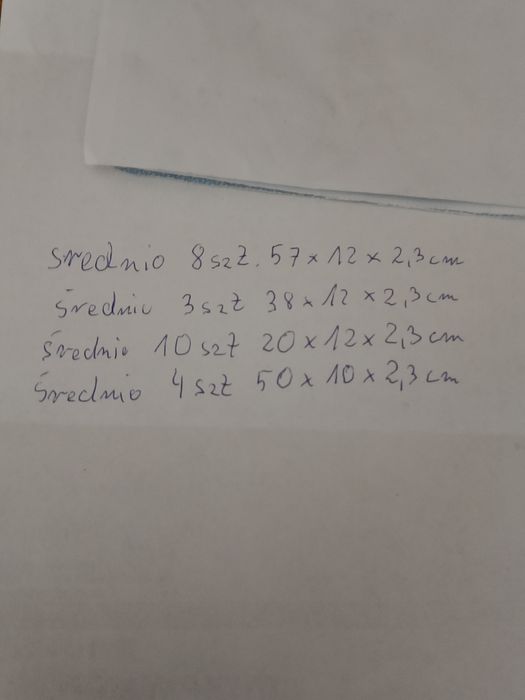 średnio 8 szt. 57 x 12 x 2,3 cm
średnio 3 szt 38 x 12 x 2,3 cm
średnio 10 szt 20 x 12 x 2,3 cm
średnio 4 szt 50 x 10 x 2,3 cm